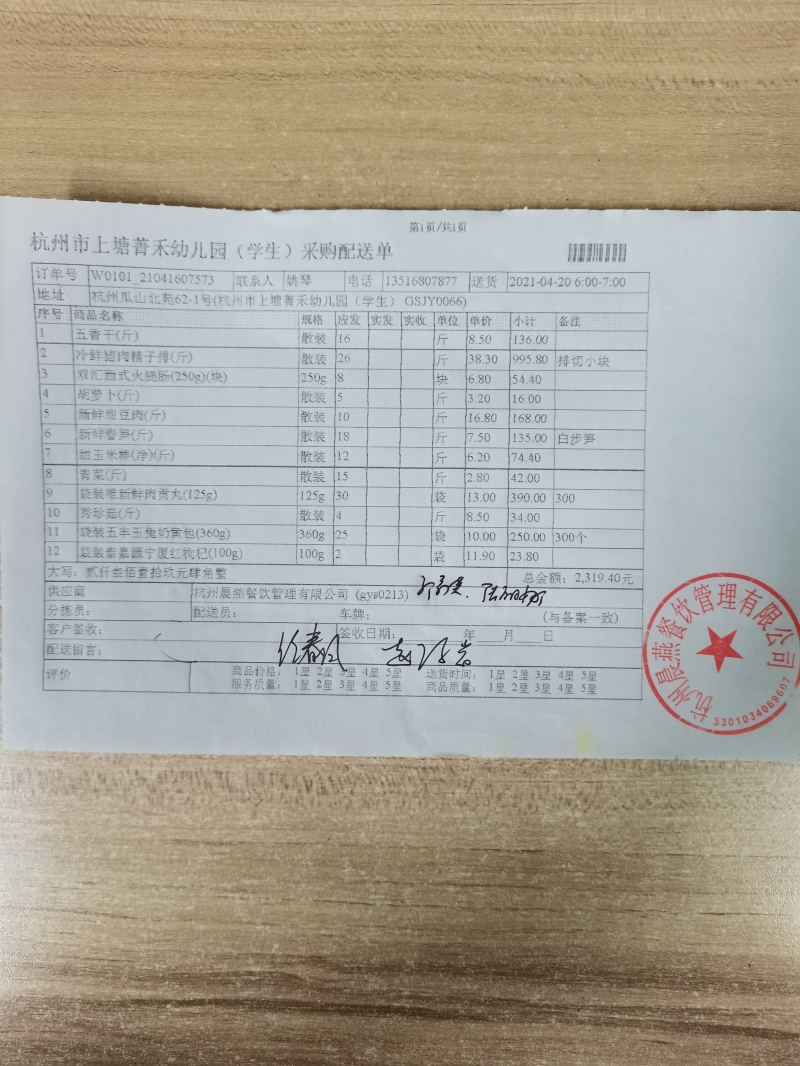 第1页/共1页
杭州市上塘菁禾幼儿园（学生）采购配送单
订单号 W0101_21041607573 联系人 姚琴 电话 13516807877 送货 2021-04-20 6:00-7:00
地址 杭州瓜山北苑62-1号(杭州市上塘菁禾幼儿园（学生） GSJY0066)
序号 商品名称 规格 应发 实发 实收 单位 单价 小计 备注
1 五香干(斤) 散装 16 斤 8.50 136.00
2 冷鲜猪肉精子排(斤) 散装 26 斤 38.30 995.80 排切小块
3 双汇西式火腿肠(250g)(块) 250g 8 块 6.80 54.40
4 胡萝卜(斤) 散装 5 斤 3.20 16.00
5 新鲜甜豆肉(斤) 散装 10 斤 16.80 168.00
6 新鲜春笋(斤) 散装 18 斤 7.50 135.00 白步笋
7 甜玉米棒(净)(斤) 散装 12 斤 6.20 74.40
8 青菜(斤) 散装 15 斤 2.80 42.00
9 袋装唯新鲜肉贡丸(125g) 125g 30 袋 13.00 390.00 300
10 秀珍菇(斤) 散装 4 斤 8.50 34.00
11 袋装五丰玉兔奶黄包(360g) 360g 25 袋 10.00 250.00 300个
12 袋装泰嘉源宁厦红枸杞(100g) 100g 2 袋 11.90 23.80
大写：贰仟叁佰壹拾玖元肆角整 总金额：2,319.40元
供应商 杭州晨燕餐饮管理有限公司（gys0213)
分拣员： 配送员： 车牌： (与备案一致)
客户签收： 签收日期： 年 月 日
配送留言：
评价 商品价格： 1星 2星 3星 4星 5星 送货时间： 1星 2星 3星 4星 5星
服务质量： 1星 2星 3星 4星 5星 商品质量： 1星 2星 3星 4星 5星
杭州晨燕餐饮管理有限公司
3301034069607